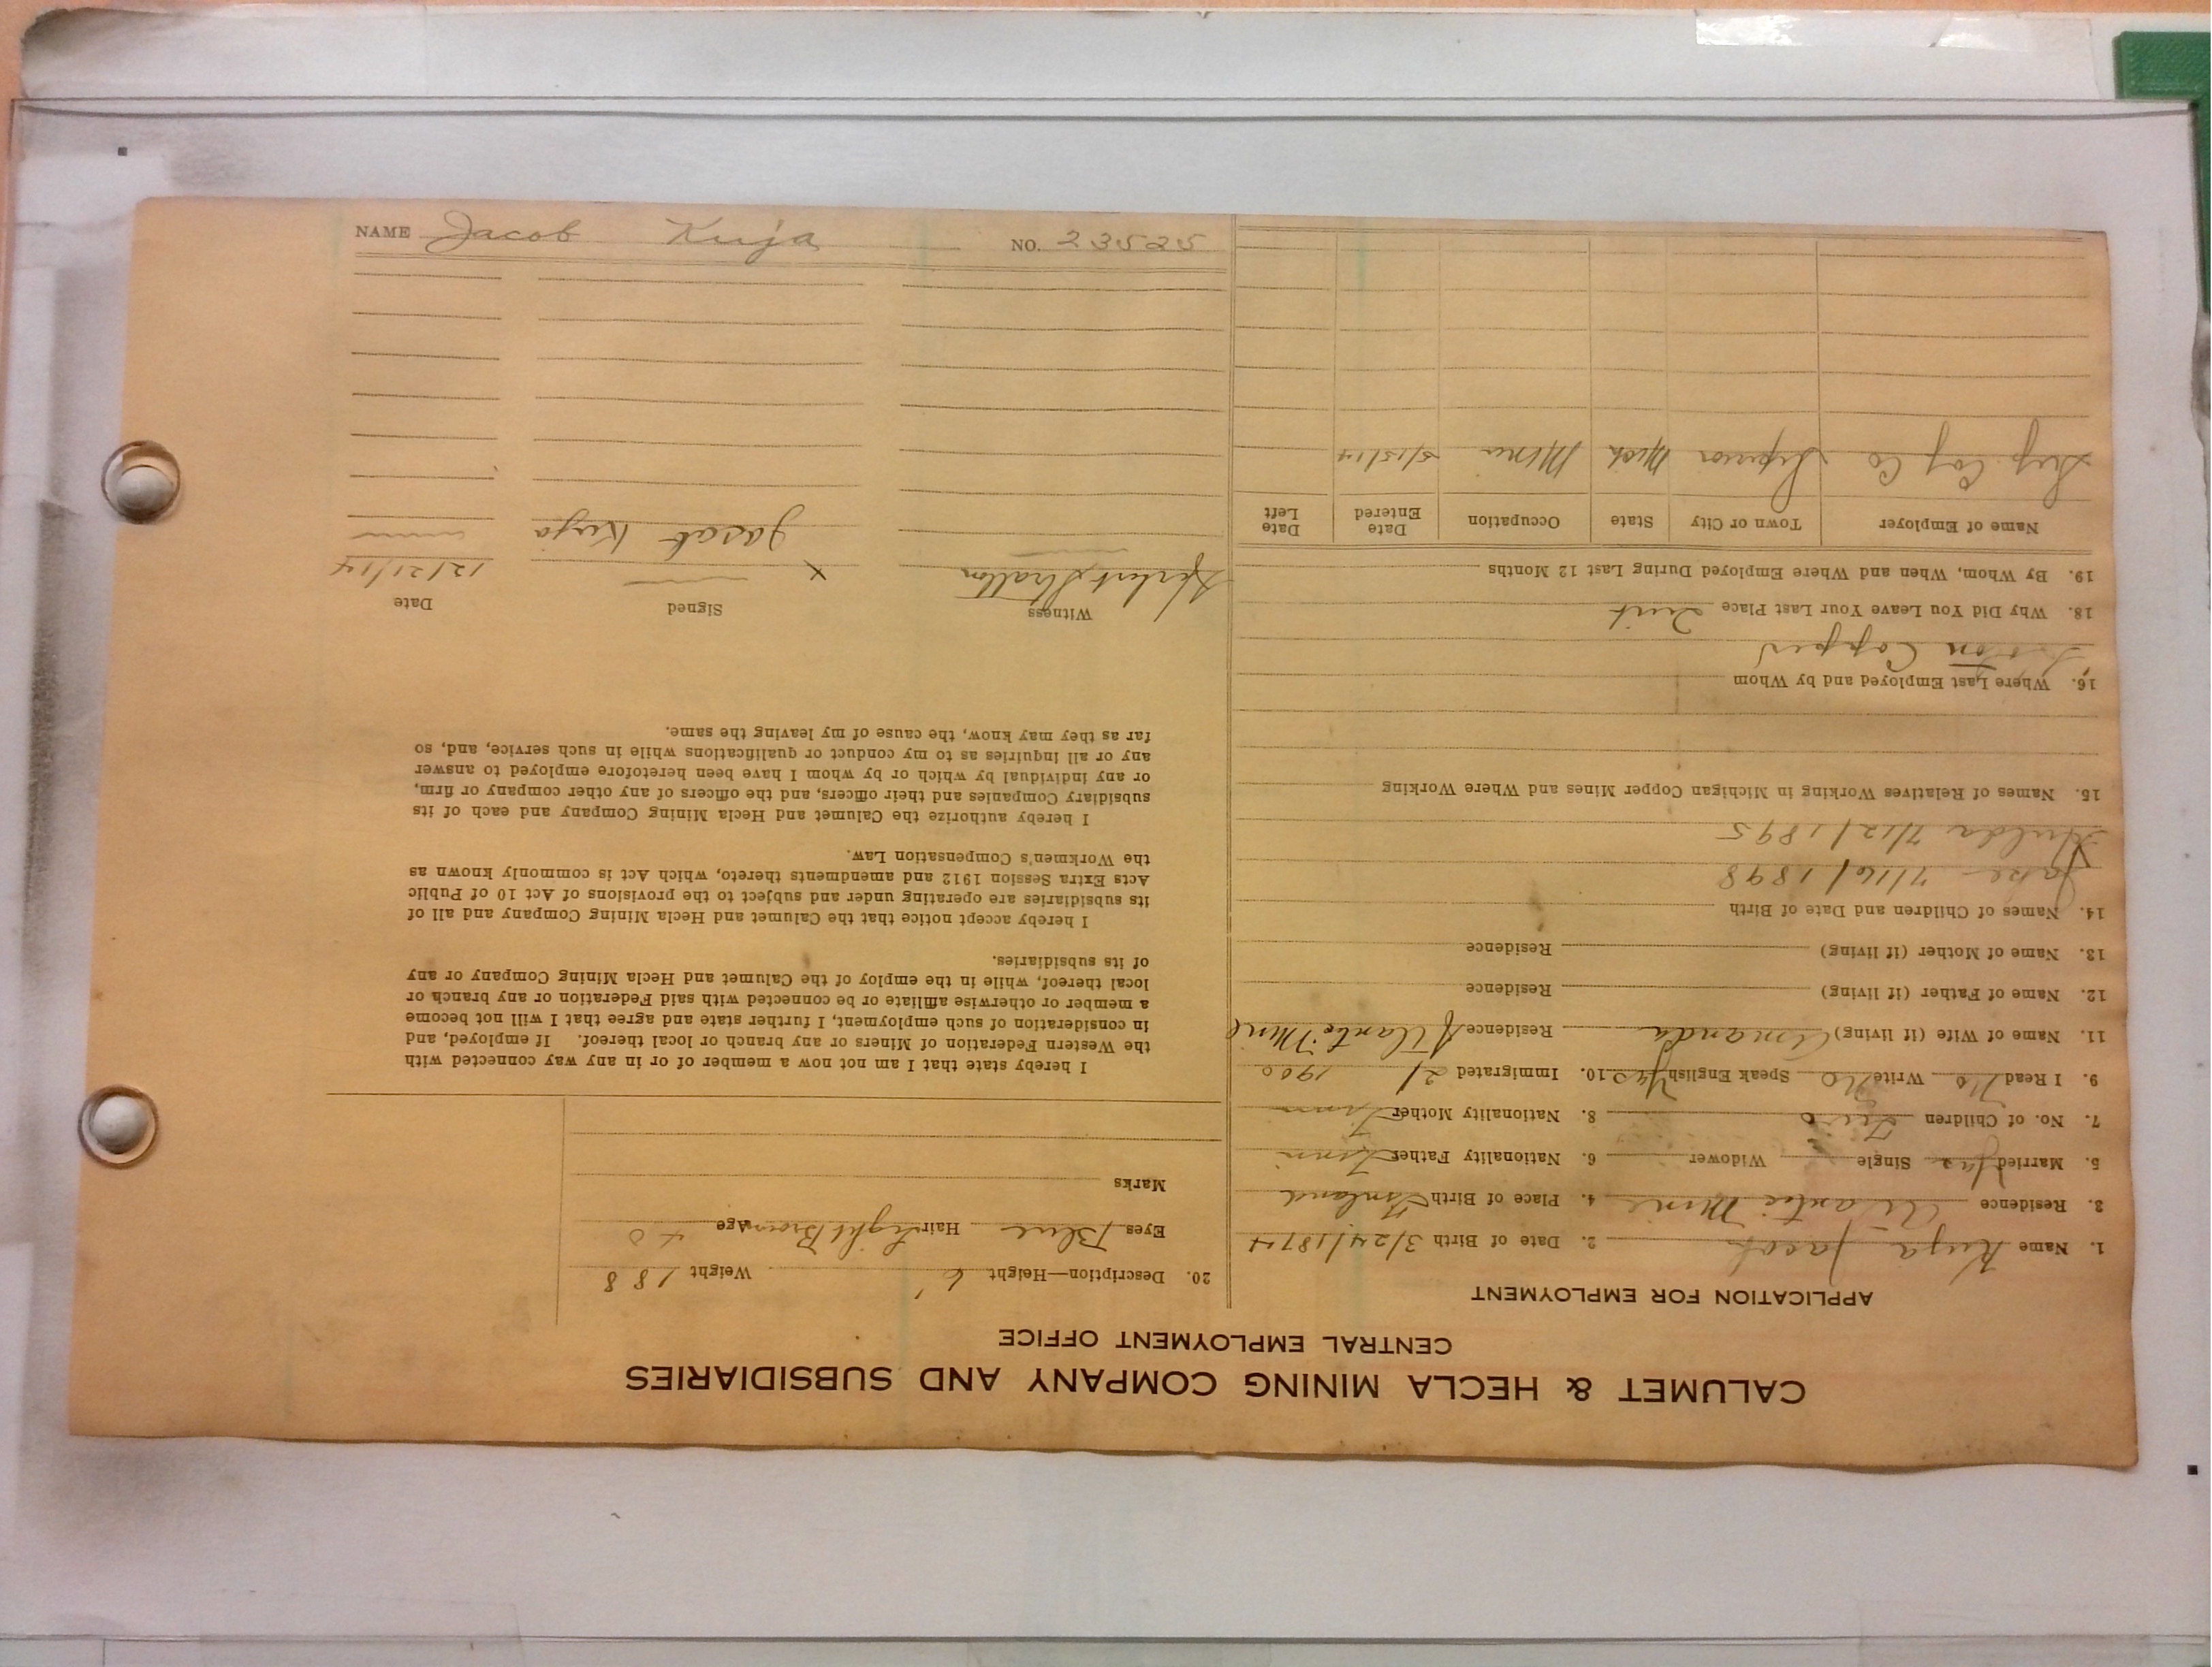 CALUMET & HECLA MINING COMPANY AND SUBSIDIARIES
CENTRAL EMPLOYMENT OFFICE
APPLICATION FOR EMPLOYMENT
1. Name Kuja Jacob 2. Date of Birth 3/24/1874
3. Residence Atlantic Mine 4. Place of Birth Finland
5. Married Yes Single Widower 6. Nationality Father Finn
7. No. of Children Two 8. Nationality Mother Finn
9. I Read No Write No Speak English Yes 10. Immigrated 21 1900
11. Name of Wife (if living) Amanda Residence Atlantic Mine
12. Name of Father (if living) Residence
13. Name of Mother (if living) Residence
14. Names of Children and Date of Birth
Jake 7/16/1898
Hulda 7/12/1895
15. Names of Relatives Working in Michigan Copper Mines and Where Working
16. Where Last Employed and by Whom
Copper
18. Why Did You Leave Your Last Place Quit
19. By Whom, When and Where Employed During Last 12 Months
Name of Employer Town or City State Occupation Date Entered Date Left
Sup Cop Co Superior Mich Miner 5/15/14
20. Description—Height 6' Weight 188
Eyes Blue Hair Light Brown Age 40
Marks
I hereby state that I am not now a member of or in any way connected with
the Western Federation of Miners or any branch or local thereof. If employed, and
in consideration of such employment, I further state and agree that I will not become
a member or otherwise affiliate or be connected with said Federation or any branch or
local thereof, while in the employ of the Calumet and Hecla Mining Company or any
of its subsidiaries.
I hereby accept notice that the Calumet and Hecla Mining Company and all of
its subsidiaries are operating under and subject to the provisions of Act 10 of Public
Acts Extra Session 1912 and amendments thereto, which Act is commonly known as
the Workmen's Compensation Law.
I hereby authorize the Calumet and Hecla Mining Company and each of its
subsidiary Companies and their officers, and the officers of any other company or firm,
or any individual by which or by whom I have been heretofore employed to answer
any or all inquiries as to my conduct or qualifications while in such service, and, so
far as they may know, the cause of my leaving the same.
Witness Signed Date
Herbert Stratton x 12/21/14
Jacob Kuja
NAME Jacob Kuja NO. 23525